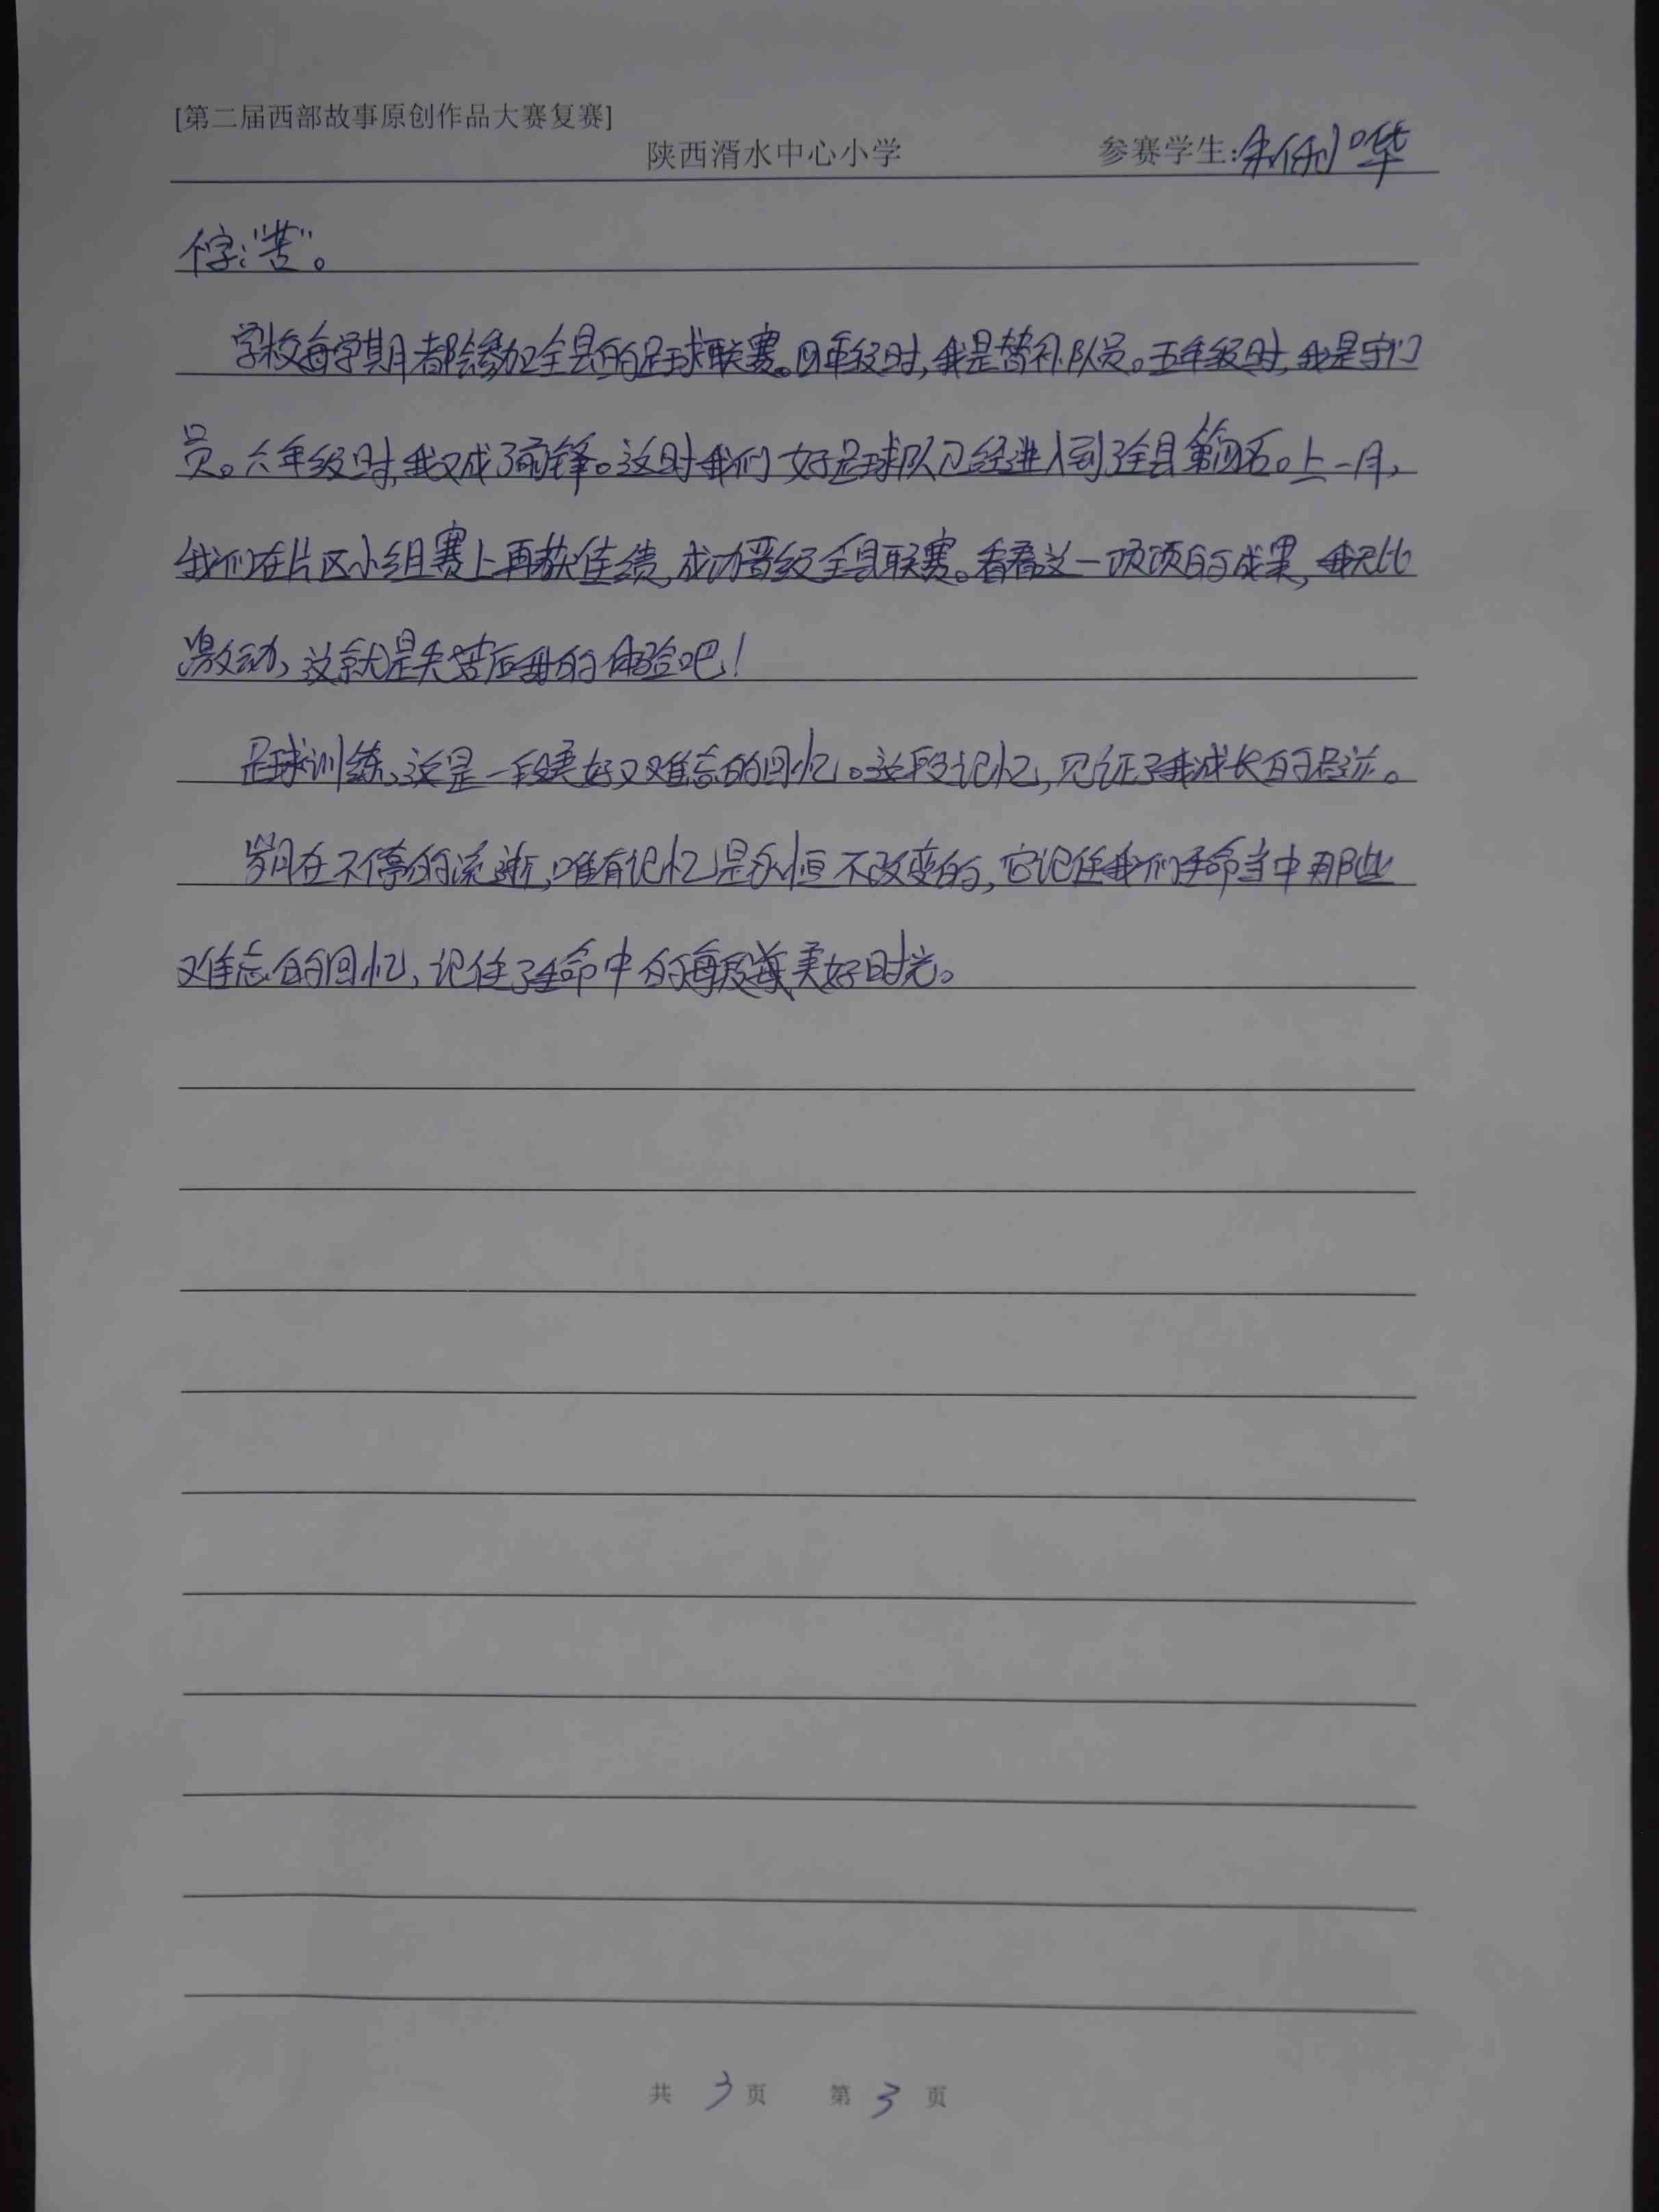 [第二届西部故事原创作品大赛复赛]
陕西湑水中心小学 参赛学生:
个字:“苦”。
学校每学期都会参加全县的足球联赛。四年级时,我是替补队员。五年级时,我是守门
员。六年级时,我又成了前锋。这时我们好足球队已经进入到了全县第四名。上一月,
我们在片区小组赛上再获佳绩,成功晋级全县联赛。看着这一项项的成果,我无比
激动,这就是先苦后甜的体验吧!
足球训练,这是一段美好又难忘的回忆。这段记忆,见证了我成长的足迹。
岁月在不停的流逝,唯有记忆是永恒不改变的,它记住我们生命当中那些
难忘的回忆,记住了生命中的每段美好时光。
共 3 页 第 3 页